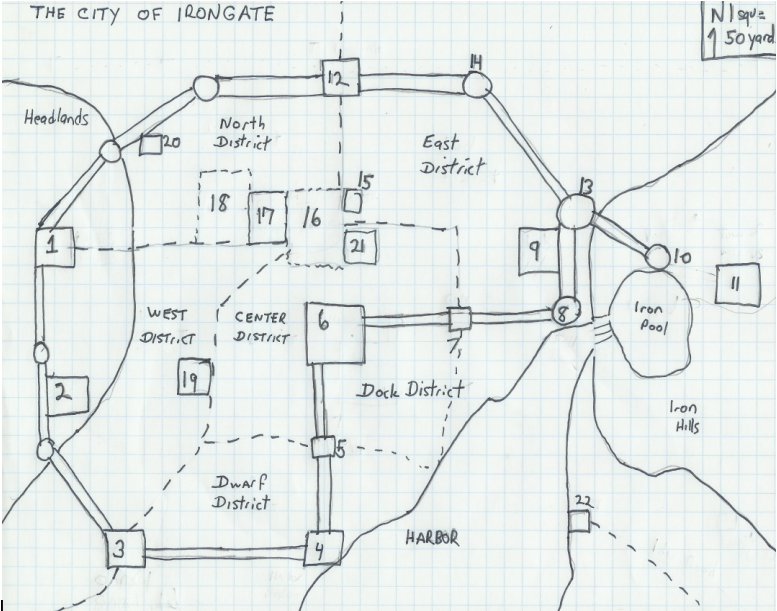 THE CITY OF IRONGATE
N 1 squ =
1 50 yard
14
12
Headlands
20
North
District
East
District
15
13
18
17
16
1
21
9
10
11
WEST
DISTRICT
CENTER
DISTRICT
6
8
Iron
Pool
7
2
19
Dock District
Iron
Hills
5
Dwarf
District
22
3
4
HARBOR